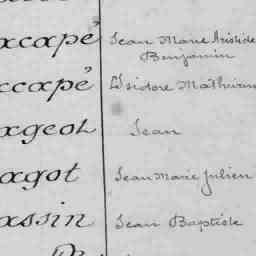 acapé Jean Marie Aristide
Benjamin
acapé Isidore Mathurin
ageol Jean
agot Jean Marie Julien
assin Jean Baptiste